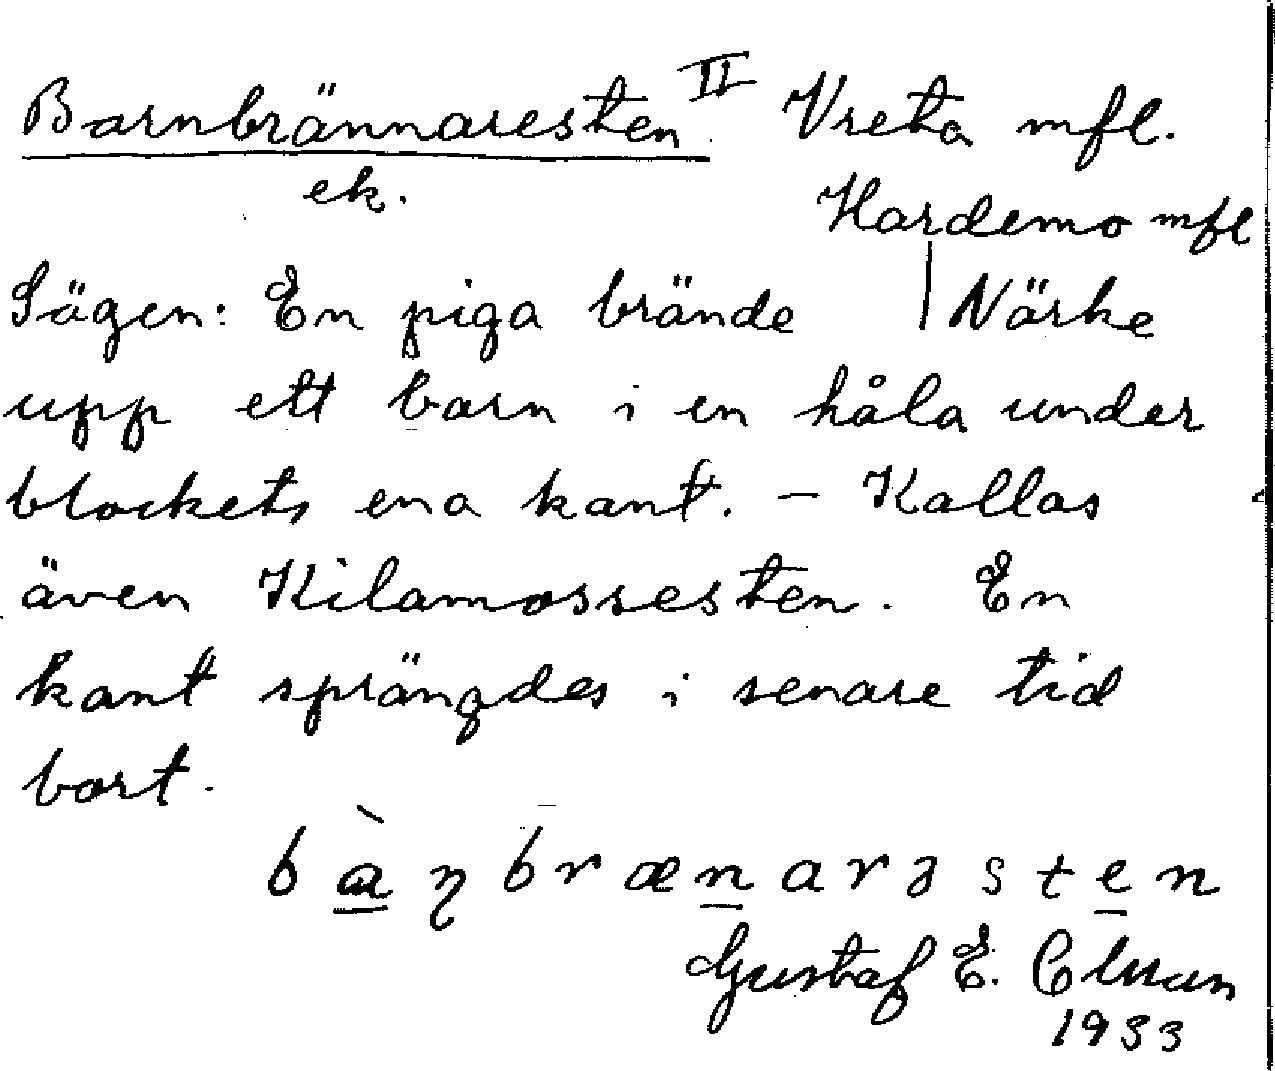 Barnbrännaresten II Vreta mfl.
ek. Hardemo mfl
Sägen: En piga brände | Närke
upp ett barn i en håla under
blockets ena kant. – Kallas
även Kilamossesten. En
kant sprängdes i senare tid
bort.
bàɳbrænarəsten
Gustaf E.
1933